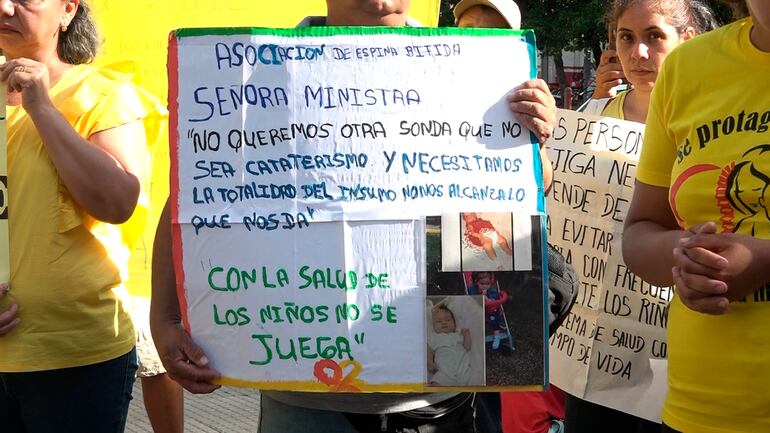 ASOCIACION DE ESPINA BIFIDA
SEÑORA MINISTRA
"NO QUEREMOS OTRA SONDA QUE NO
SEA CATATERISMO Y NECESITAMOS
LA TOTALIDAD DEL INSUMO NO NOS ALCANZA LO
QUE NOS DA"
"CON LA SALUD DE
LOS NIÑOS NO SE
JUEGA"
S PERSONA
JIGA NE
ENDE DE
EVITAR
CON FRECUEN
TE LOS RIÑ
EMA DE SALUD CO
MPO DE VIDA
se protag